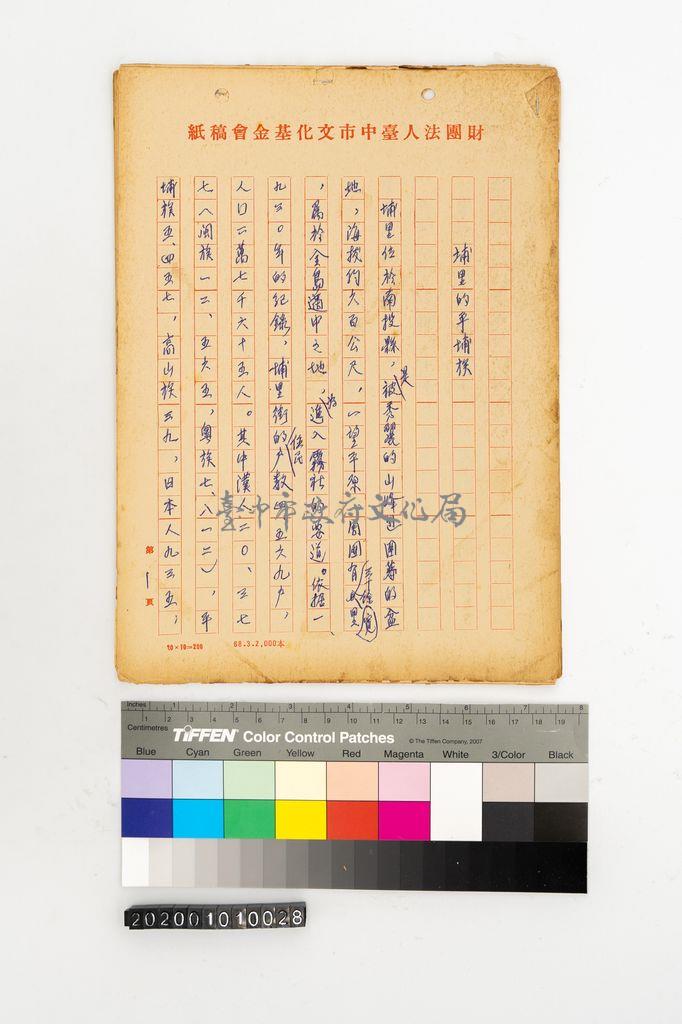 財團法人臺中市文化基金會稿紙
埔里的平埔族
埔里位於南投縣，是被秀麗的山峰包圍著的盆
地，海拔約六百公尺，一望平原周圍有三十餘里寬
，屬於全島適中之地，為進入霧社的要道。依據一
九三〇年的紀錄，埔里街的住民户數四五六九户，
人口二萬七千六十五人。其中漢人二〇、三七
七（閩族一二、五六五，粵族七、八一二），平
埔族五、四五七，高山族三九，日本人九三五；
第1頁
10×10=200
68.3.2,000本
臺中市政府文化局
Inches 1 2 3 4 5 6 7 8
Centimetres 1 2 3 4 5 6 7 8 9 10 11 12 13 14 15 16 17 18 19
TIFFEN Color Control Patches © The Tiffen Company, 2007
Blue Cyan Green Yellow Red Magenta White 3/Color Black
20200101 0028